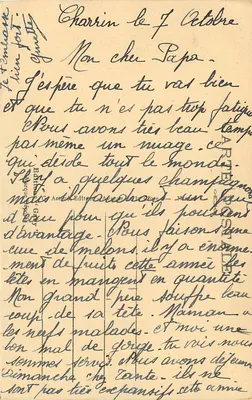 Charrin le 7 Octobre
Mon cher Papa.
J'espère que tu vas bien
et que tu n'es pas trop fatigué
Nous avons très beau temps
pas même un nuage. ce
qui désole tout le monde
Il y a quelques champignons
mais il faudrait un peu
d'eau pour qu'ils poussent
d'avantage. Nous faisons une
cure de melons, il y a énormé-
ment de fruits cette année les
bêtes en mangent en quantité
Mon grand père souffre beau
coup de sa tête. Maman a
les nerfs malades. et moi une
bon mal de gorge. tu vois nous
sommes servis. Nous avons déjeuné
Dimanche chez Tante. ils ne
sont pas très expansifs cette année
Je t'embrasse
bien fort
Ginette